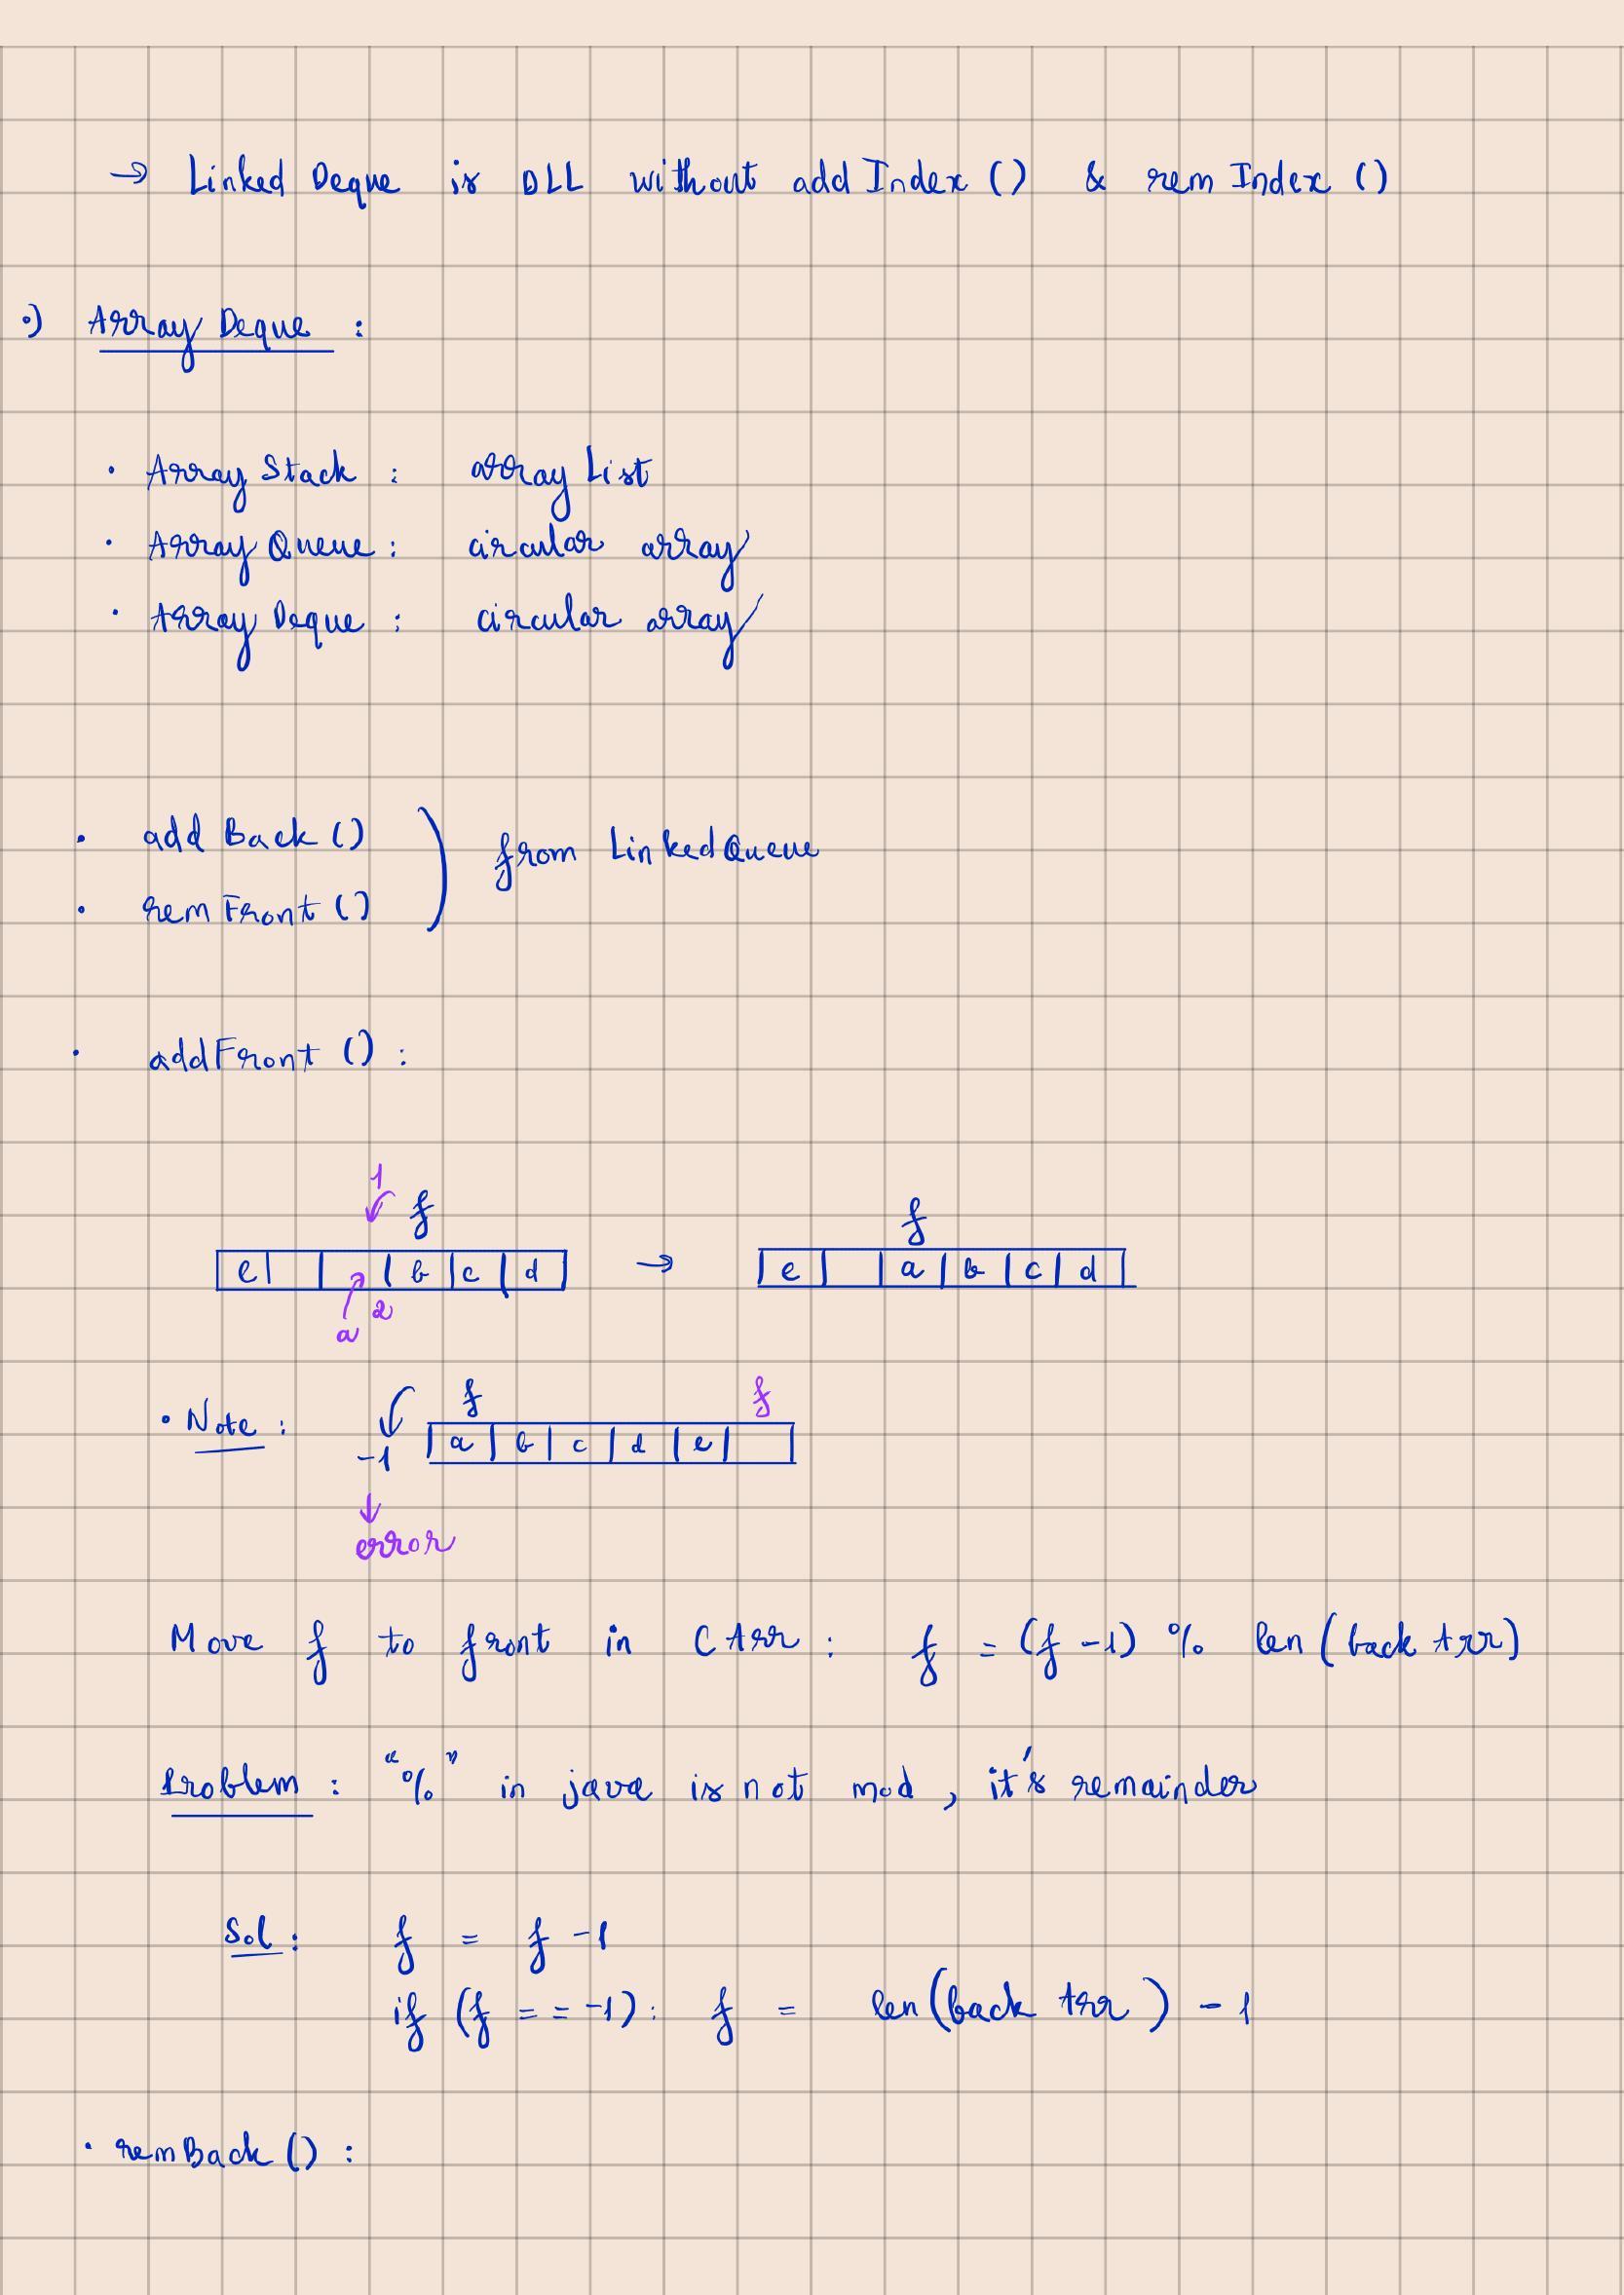 → Linked Deque is DLL without addIndex () & remIndex ()
•) Array Deque :
• Array Stack : array List
• Array Queue : circular array
• Array Deque : circular array
• add Back ()
from LinkedQueue
• rem Front ()
• addFront () :
1
f f
e b c d → e a b c d
a 2
• Note : f f
-1 a b c d e
↓
error
Move f to front in C Arr : f = (f -1) % len (back Arr)
Problem : "%" in java is not mod , it's remainder
Sol : f = f -1
if (f == -1) : f = len (back Arr) - 1
• remBack () :